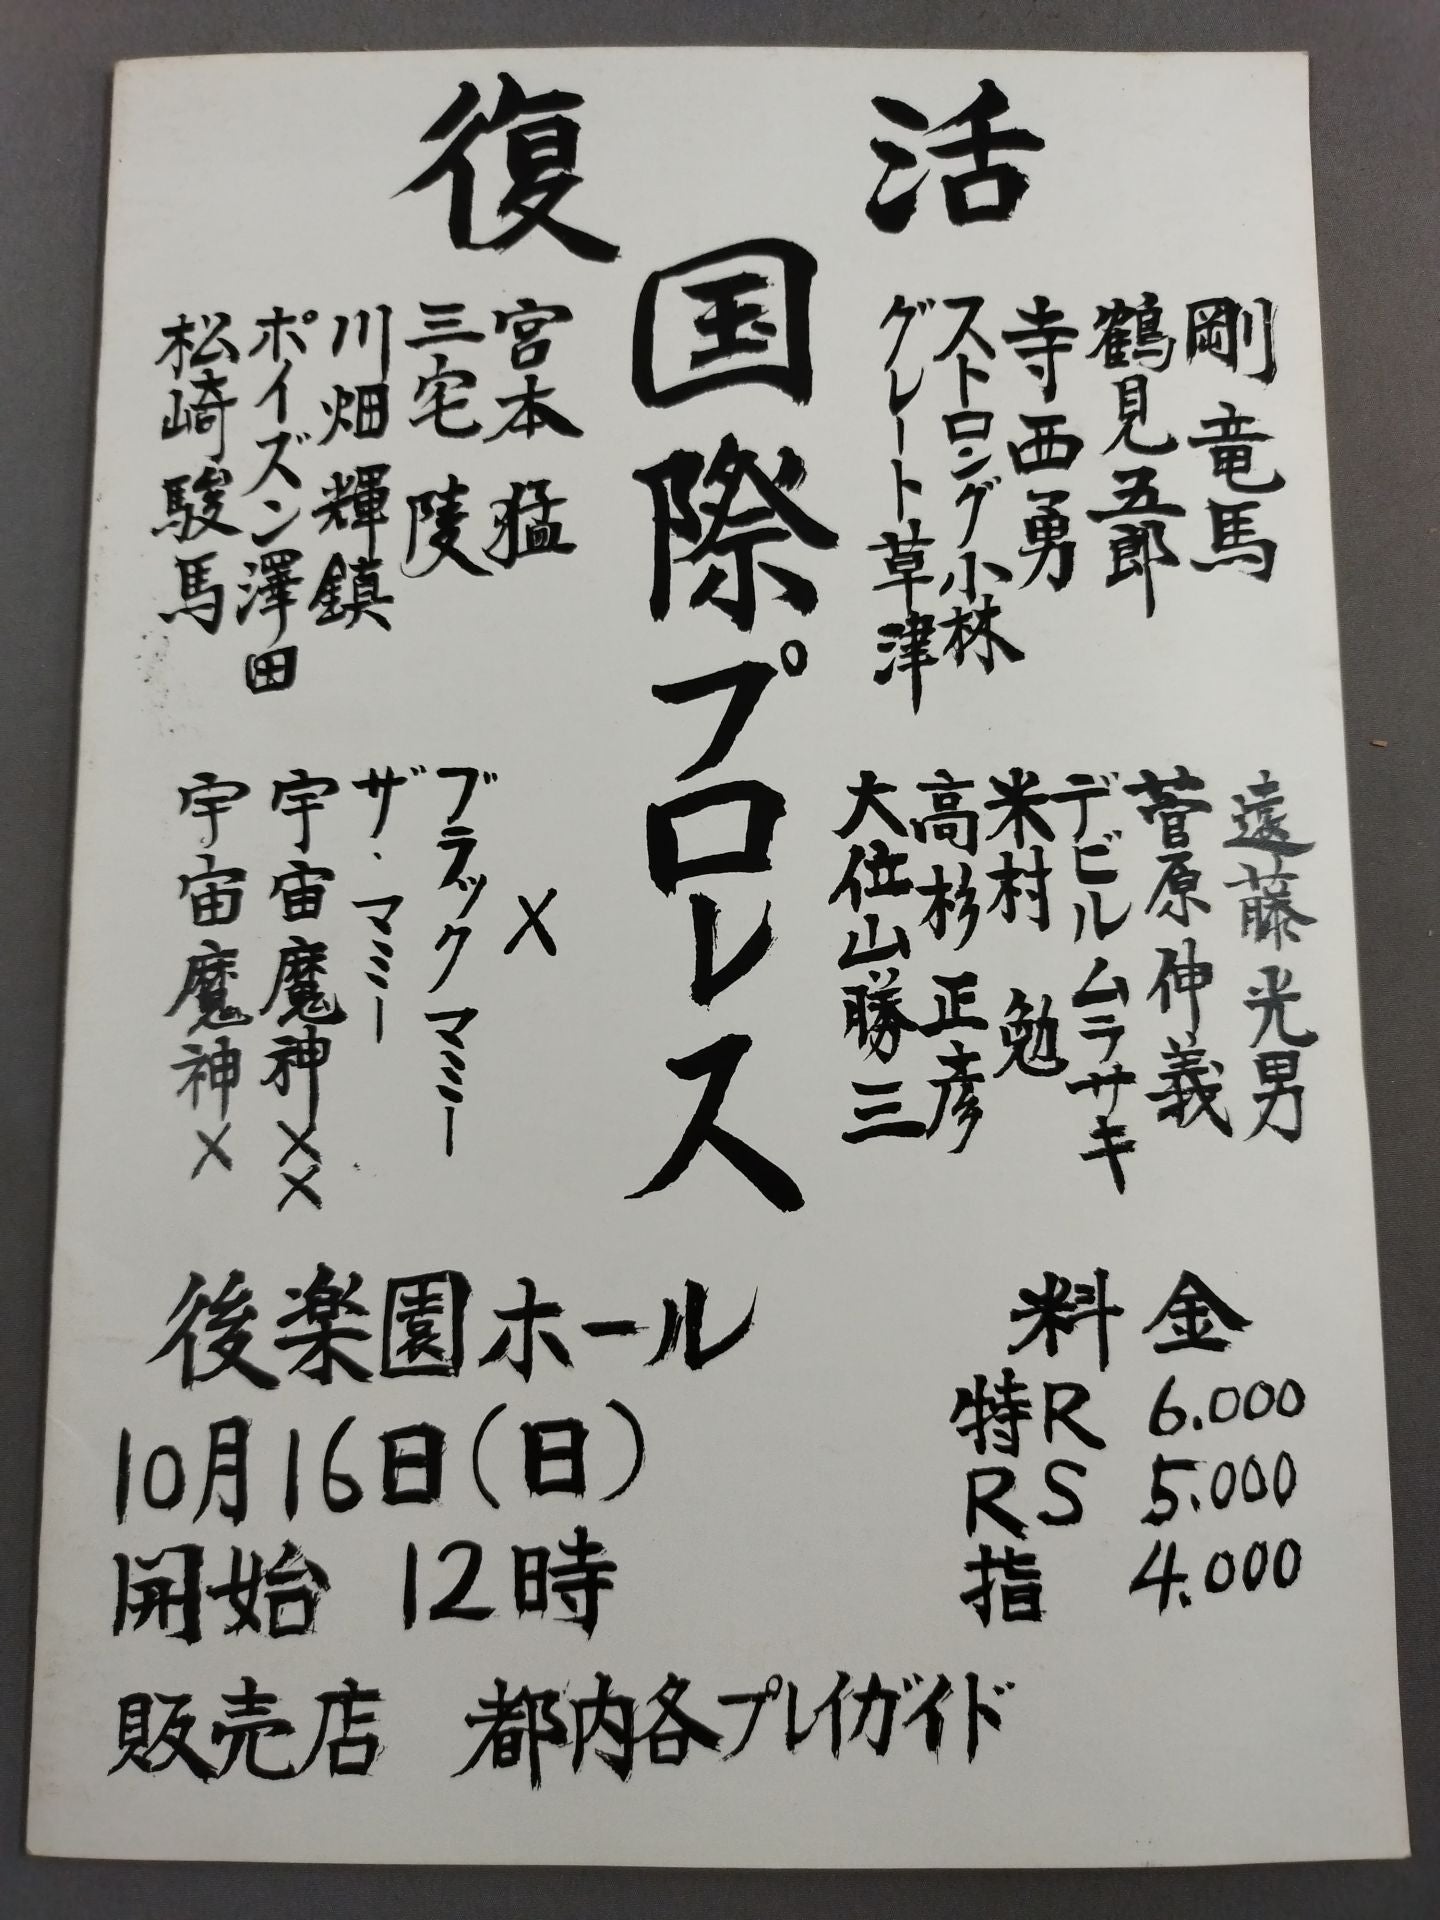 復活
国際プロレス
剛竜馬
鶴見五郎
寺西勇
ストロング小林
グレート草津
宮本猛
三宅陵
川畑輝鎮
ポイズン澤田
松崎駿馬
遠藤光男
菅原伸義
デビルムラサキ
米村勉
高杉正彦
大位山勝三
X
ブラックマミー
ザ・マミー
宇宙魔神XX
宇宙魔神X
後楽園ホール
10月16日(日)
開始 12時
料金
特R 6.000
RS 5.000
指 4.000
販売店 都内各プレイガイド